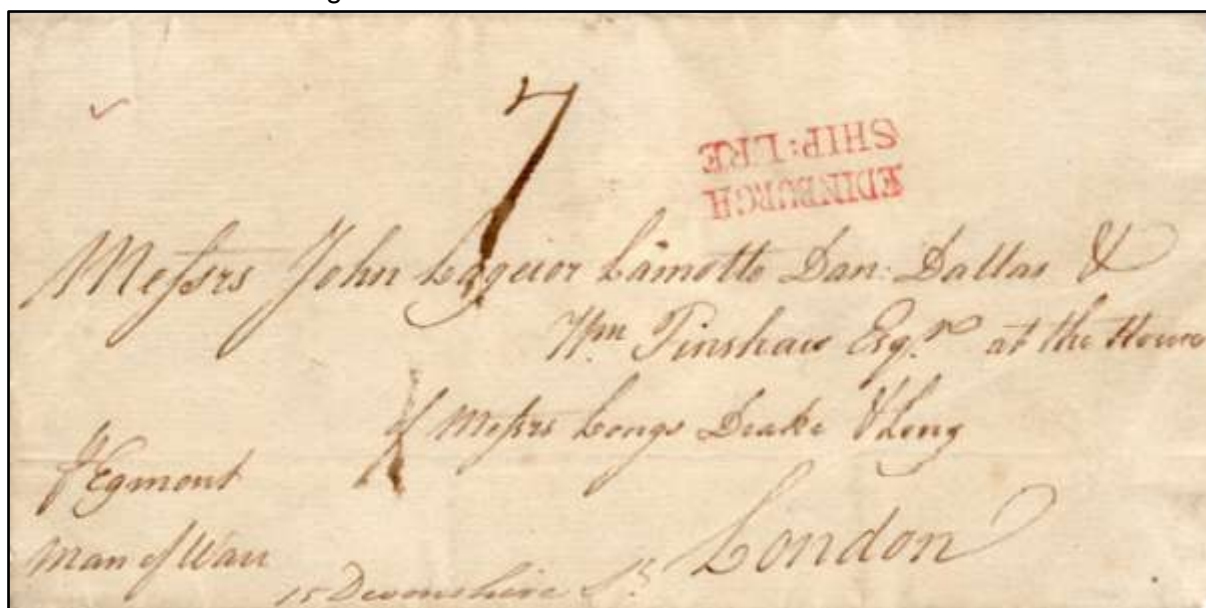 7
EDINBURGH
SHIP:LRE
Messrs John Lamotte Dan: Dallas &
Wm Tinshaw Esqrs at the House
of Messrs Longs Drake & Long
London
Egmont
Man of Warr
15 Devonshire St